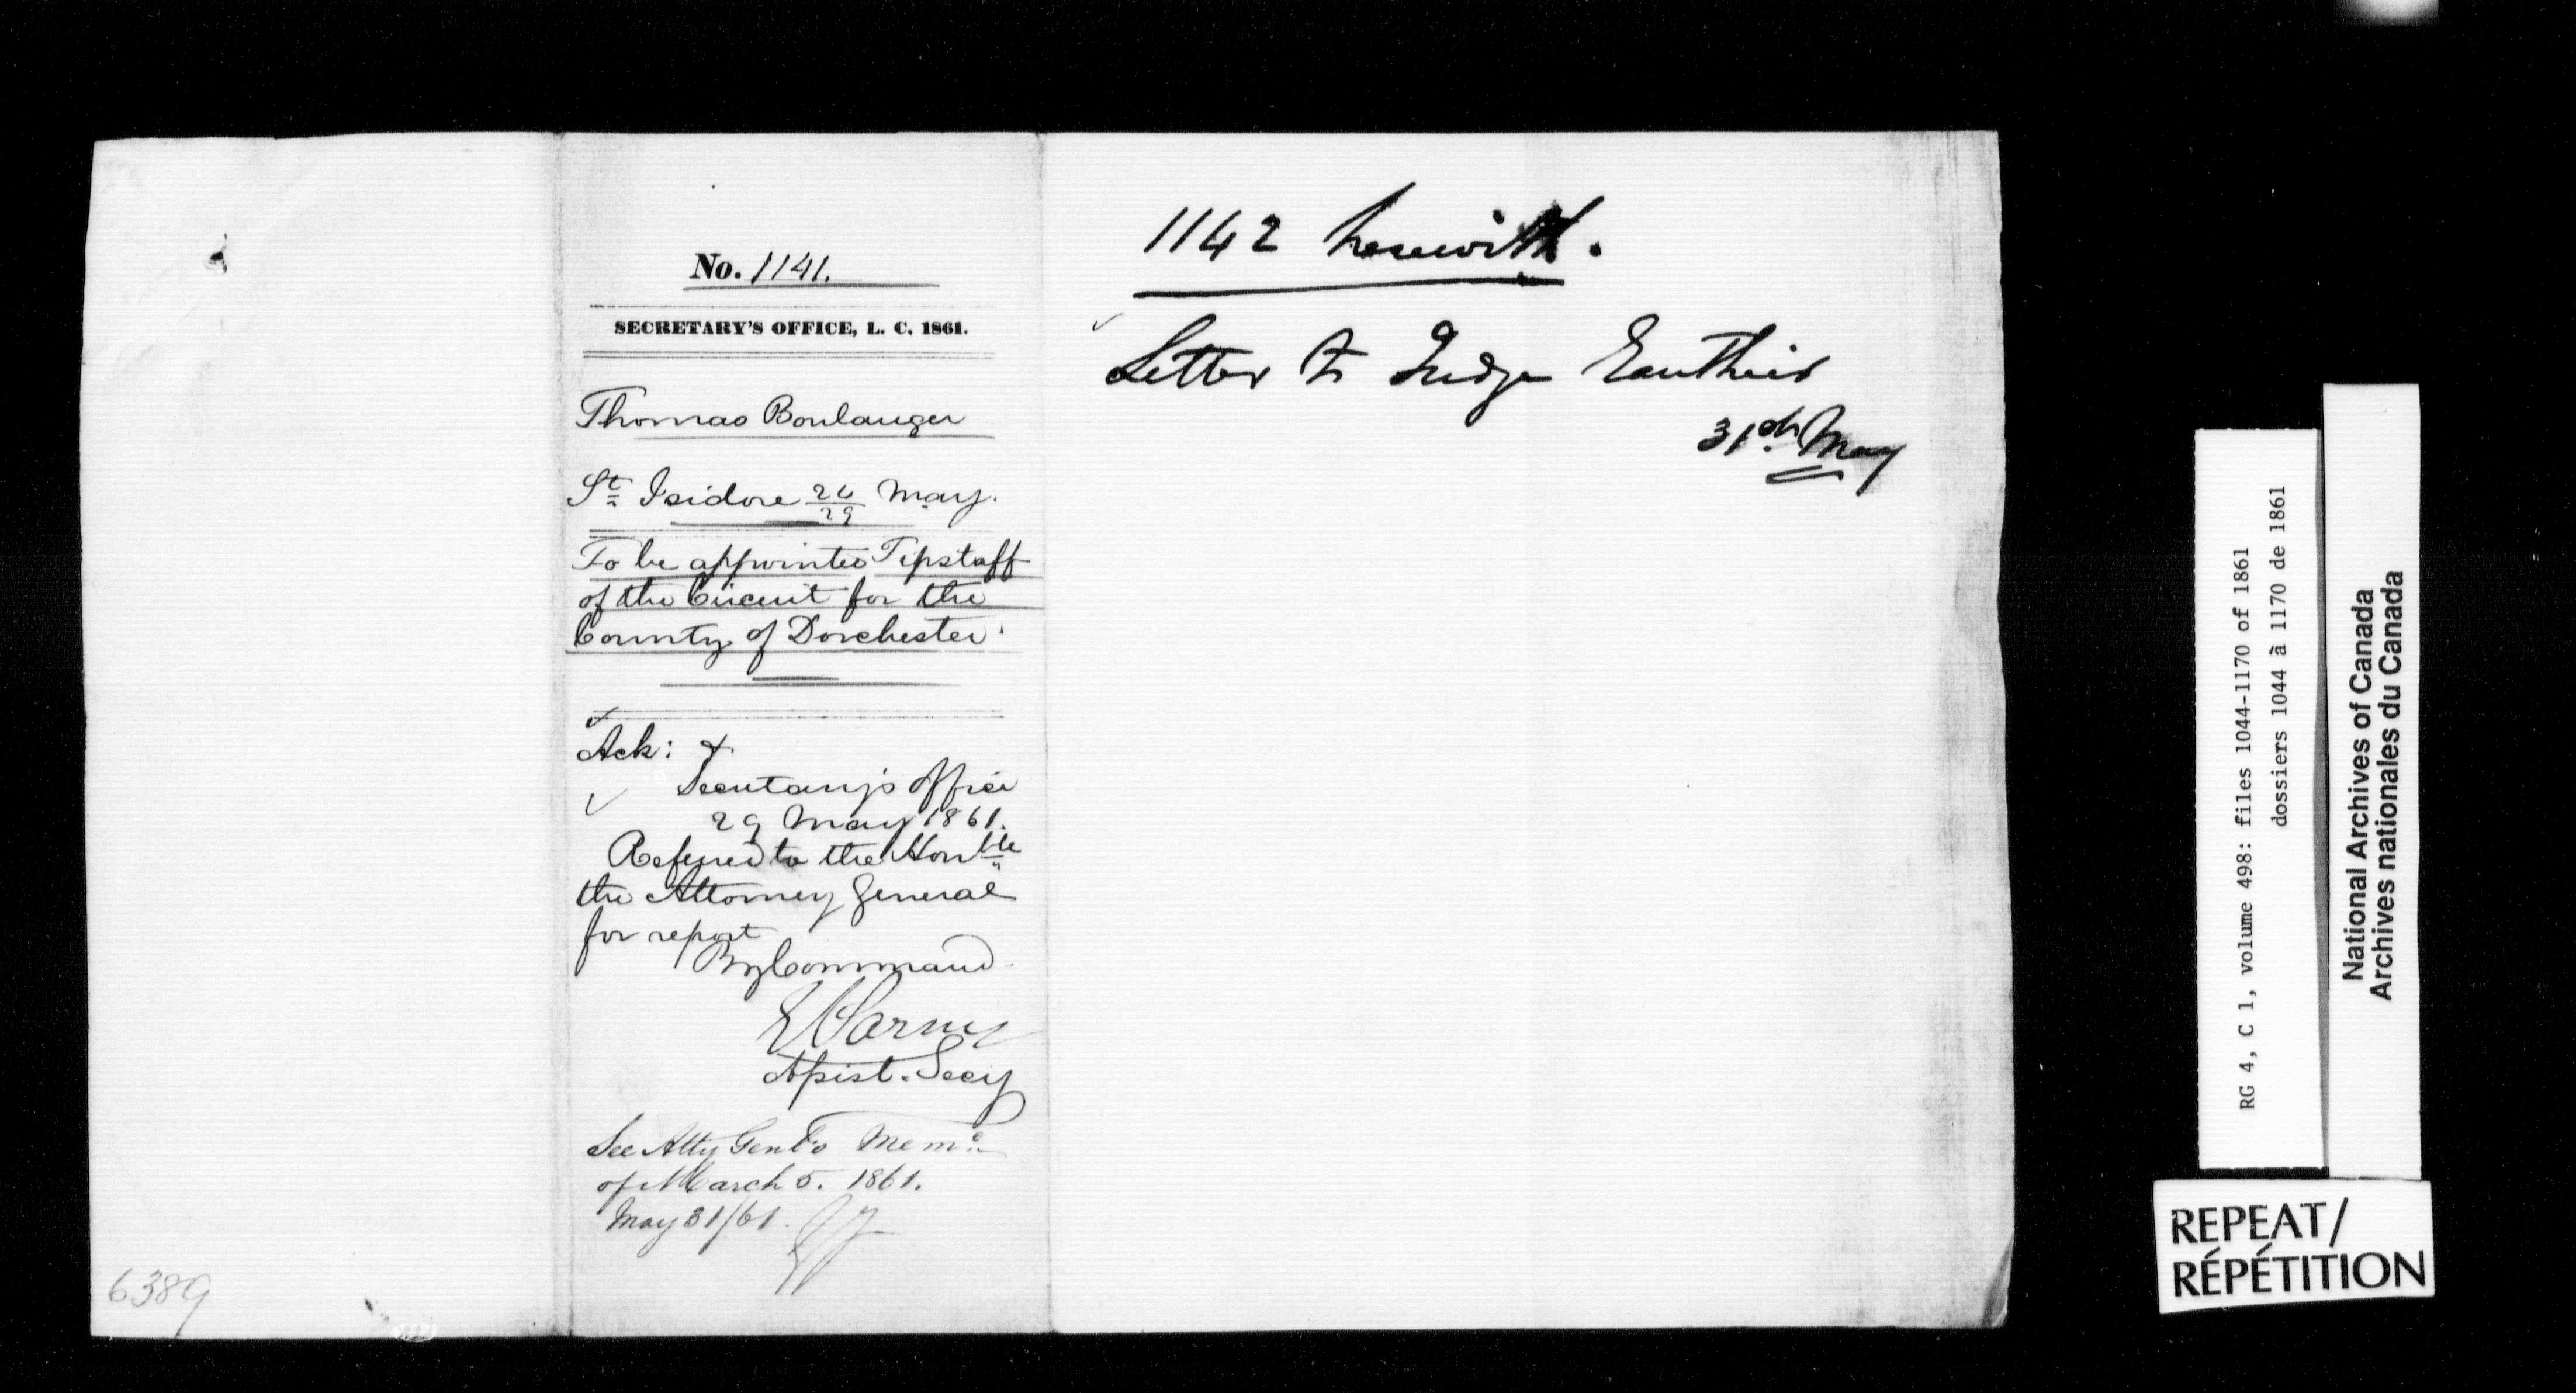 No. 1141.
SECRETARY'S OFFICE, L. C. 1861.
Thomas Boulanger
St Isidore 26/29 May.
To be appointed Tipstaff
of the Circuit for the
County of Dorchester.
Ack: &
Secretary's Office
29 May 1861.
Referred to the Honble
the Attorney General
for report
By Command
Assist. Secy
See Atty Genl's Memo
of March 5. 1861.
May 31/61.
6389
1142 herewith.
Letter to Judge Gauthier
31st May
RG 4, C 1, volume 498: files 1044-1170 of 1861
dossiers 1044 à 1170 de 1861
National Archives of Canada
Archives nationales du Canada
REPEAT/
RÉPÉTITION